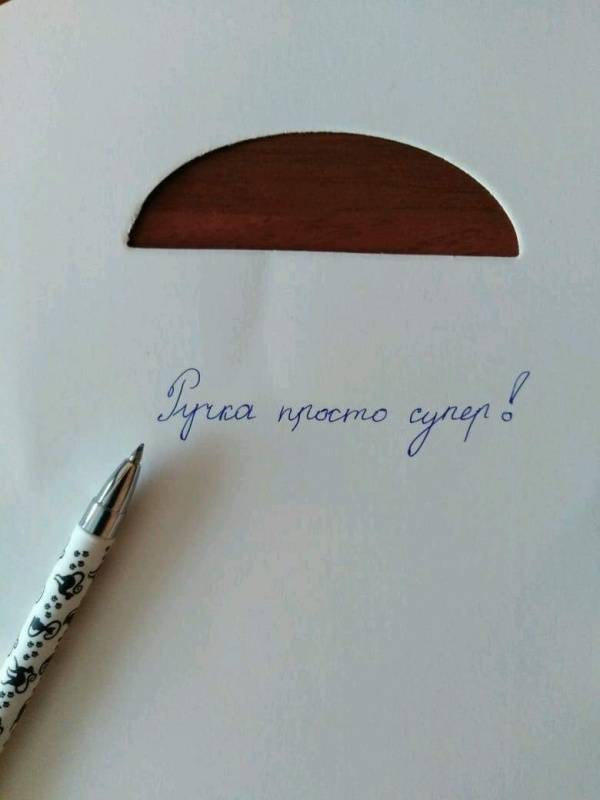 Ручка просто супер!